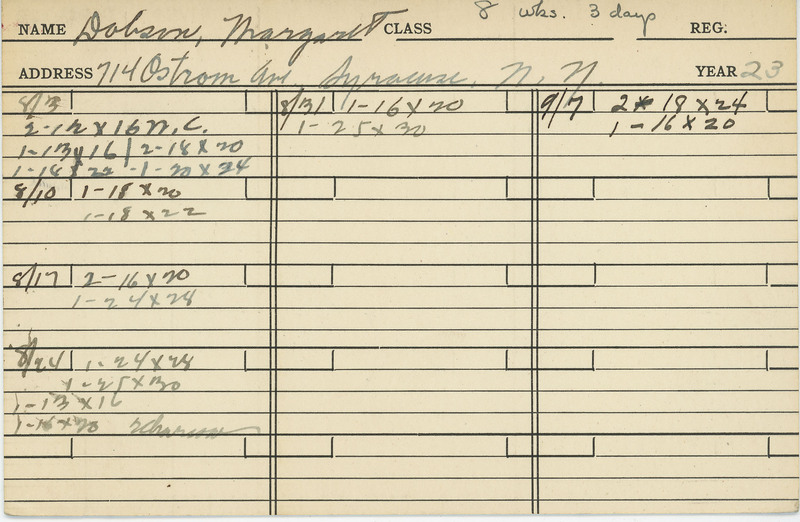 NAME Dobson, Margaret CLASS 8 wks. 3 days REG.
ADDRESS 714 Ostrom Ave. Syracuse, N. Y. YEAR 23
8/3
2-12x16 W.C.
1-13x16 / 2-18x20
1-18x22 - 1-20x24
8/10 1-18x20
1-18x22
8/17 2-16x20
1-24x28
8/24 1-24x28
1-25x30
1-13x16
1-16x20
8/31 1-16x20
1-25x30
9/7 2x18x24
1-16x20